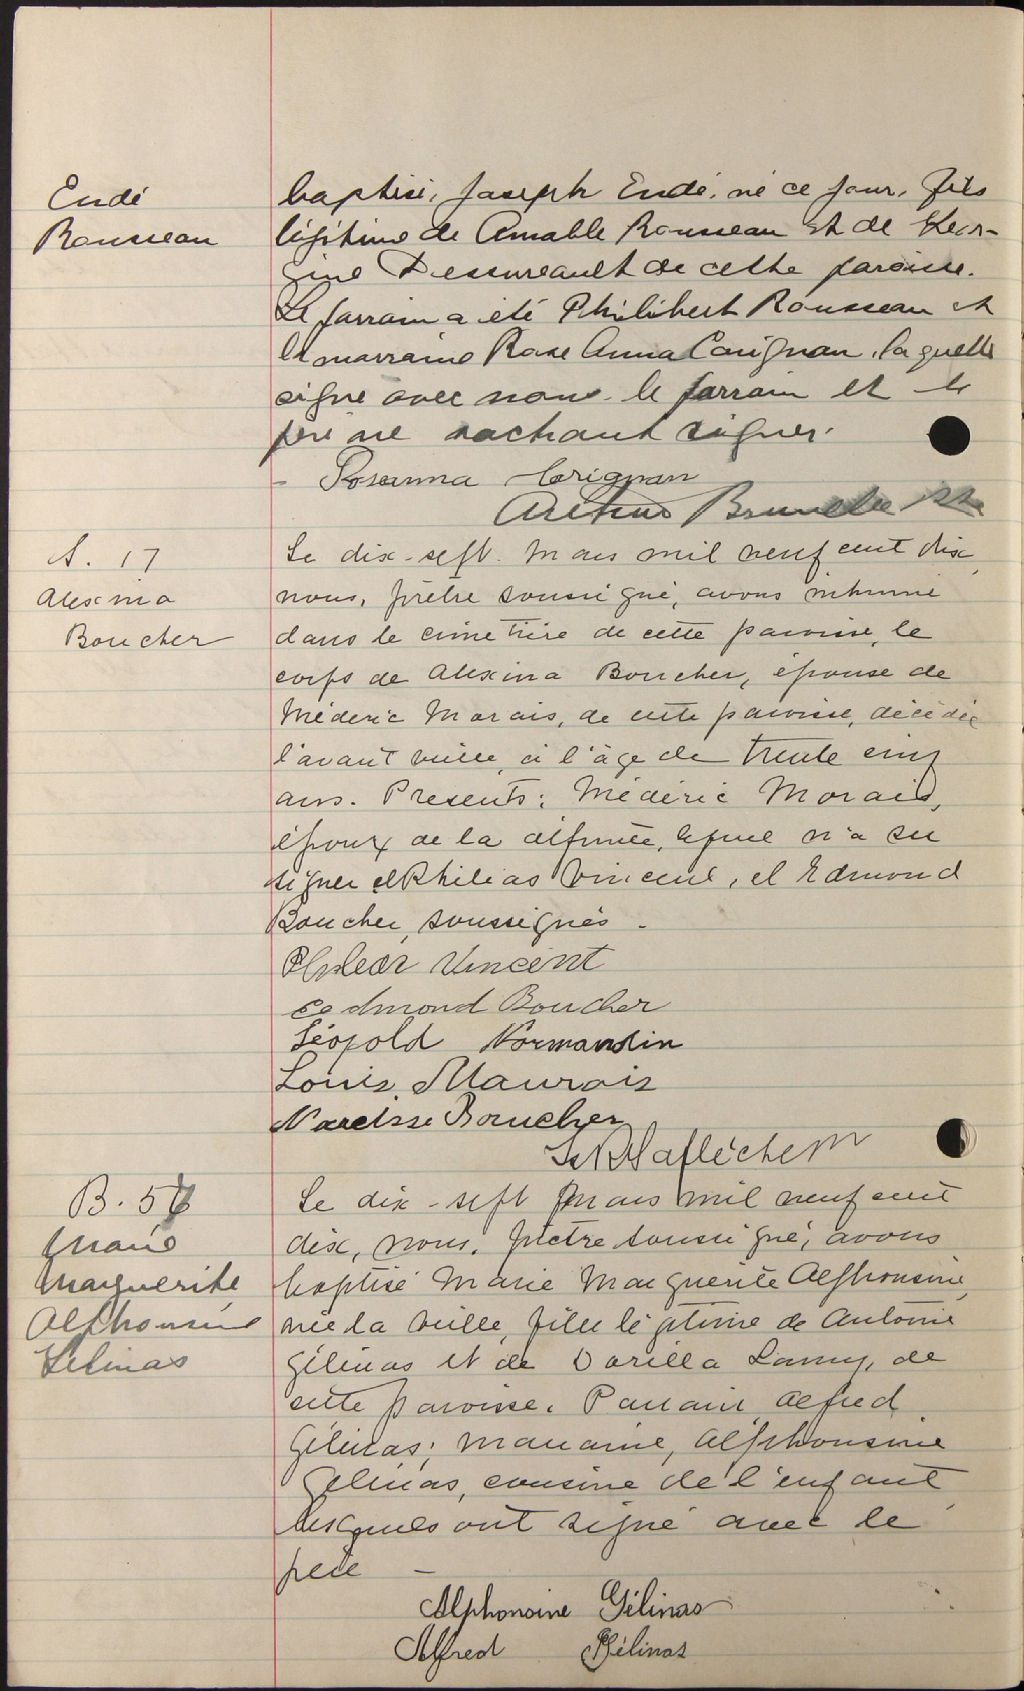 Eudé
Rousseau
baptisé, Joseph Eudé, né ce jour, fils
légitime de Amable Rousseau et de Geor-
gine Dessureault de cette paroisse.
Le parrain a été Philibert Rousseau et
la marraine Rose Anna Carignan, laquelle
signe avec nous le parrain et le
père ne sachant signer.
Rosanna Carignan
Arthur Brunelle
S. 17
Alexina
Boucher
Le dix-sept Mars mil neuf cent dix
nous, prêtre soussigné, avons inhumé
dans le cimetière de cette paroisse, le
corps de Alexina Boucher, épouse de
Médéric Morais, de cette paroisse, décédée
l'avant veille, à l'âge de trente cinq
ans. Présents: Médéric Morais,
époux de la défunte, lequel n'a su
signer et Philias Vincent, et Edmond
Boucher, soussignés.
Vincent
Edmond Boucher
Léopold Normandin
Louis Maurais
Narcisse Boucher
Laflèche
B. 56
Marie
Marguerite
Alphonsine
Gélinas
Le dix-sept Mars mil neuf cent
dix, nous, prêtre soussigné, avons
baptisé Marie Marguerite Alphonsine,
née la veille, fille légitime de Antonio
Gélinas et de Dorilla Lamy, de
cette paroisse. Parrain Alfred
Gélinas; marraine, Alphonsine
Gélinas, cousine de l'enfant
lesquels ont signé avec le
père —
Alphonsine Gélinas
Alfred Gélinas